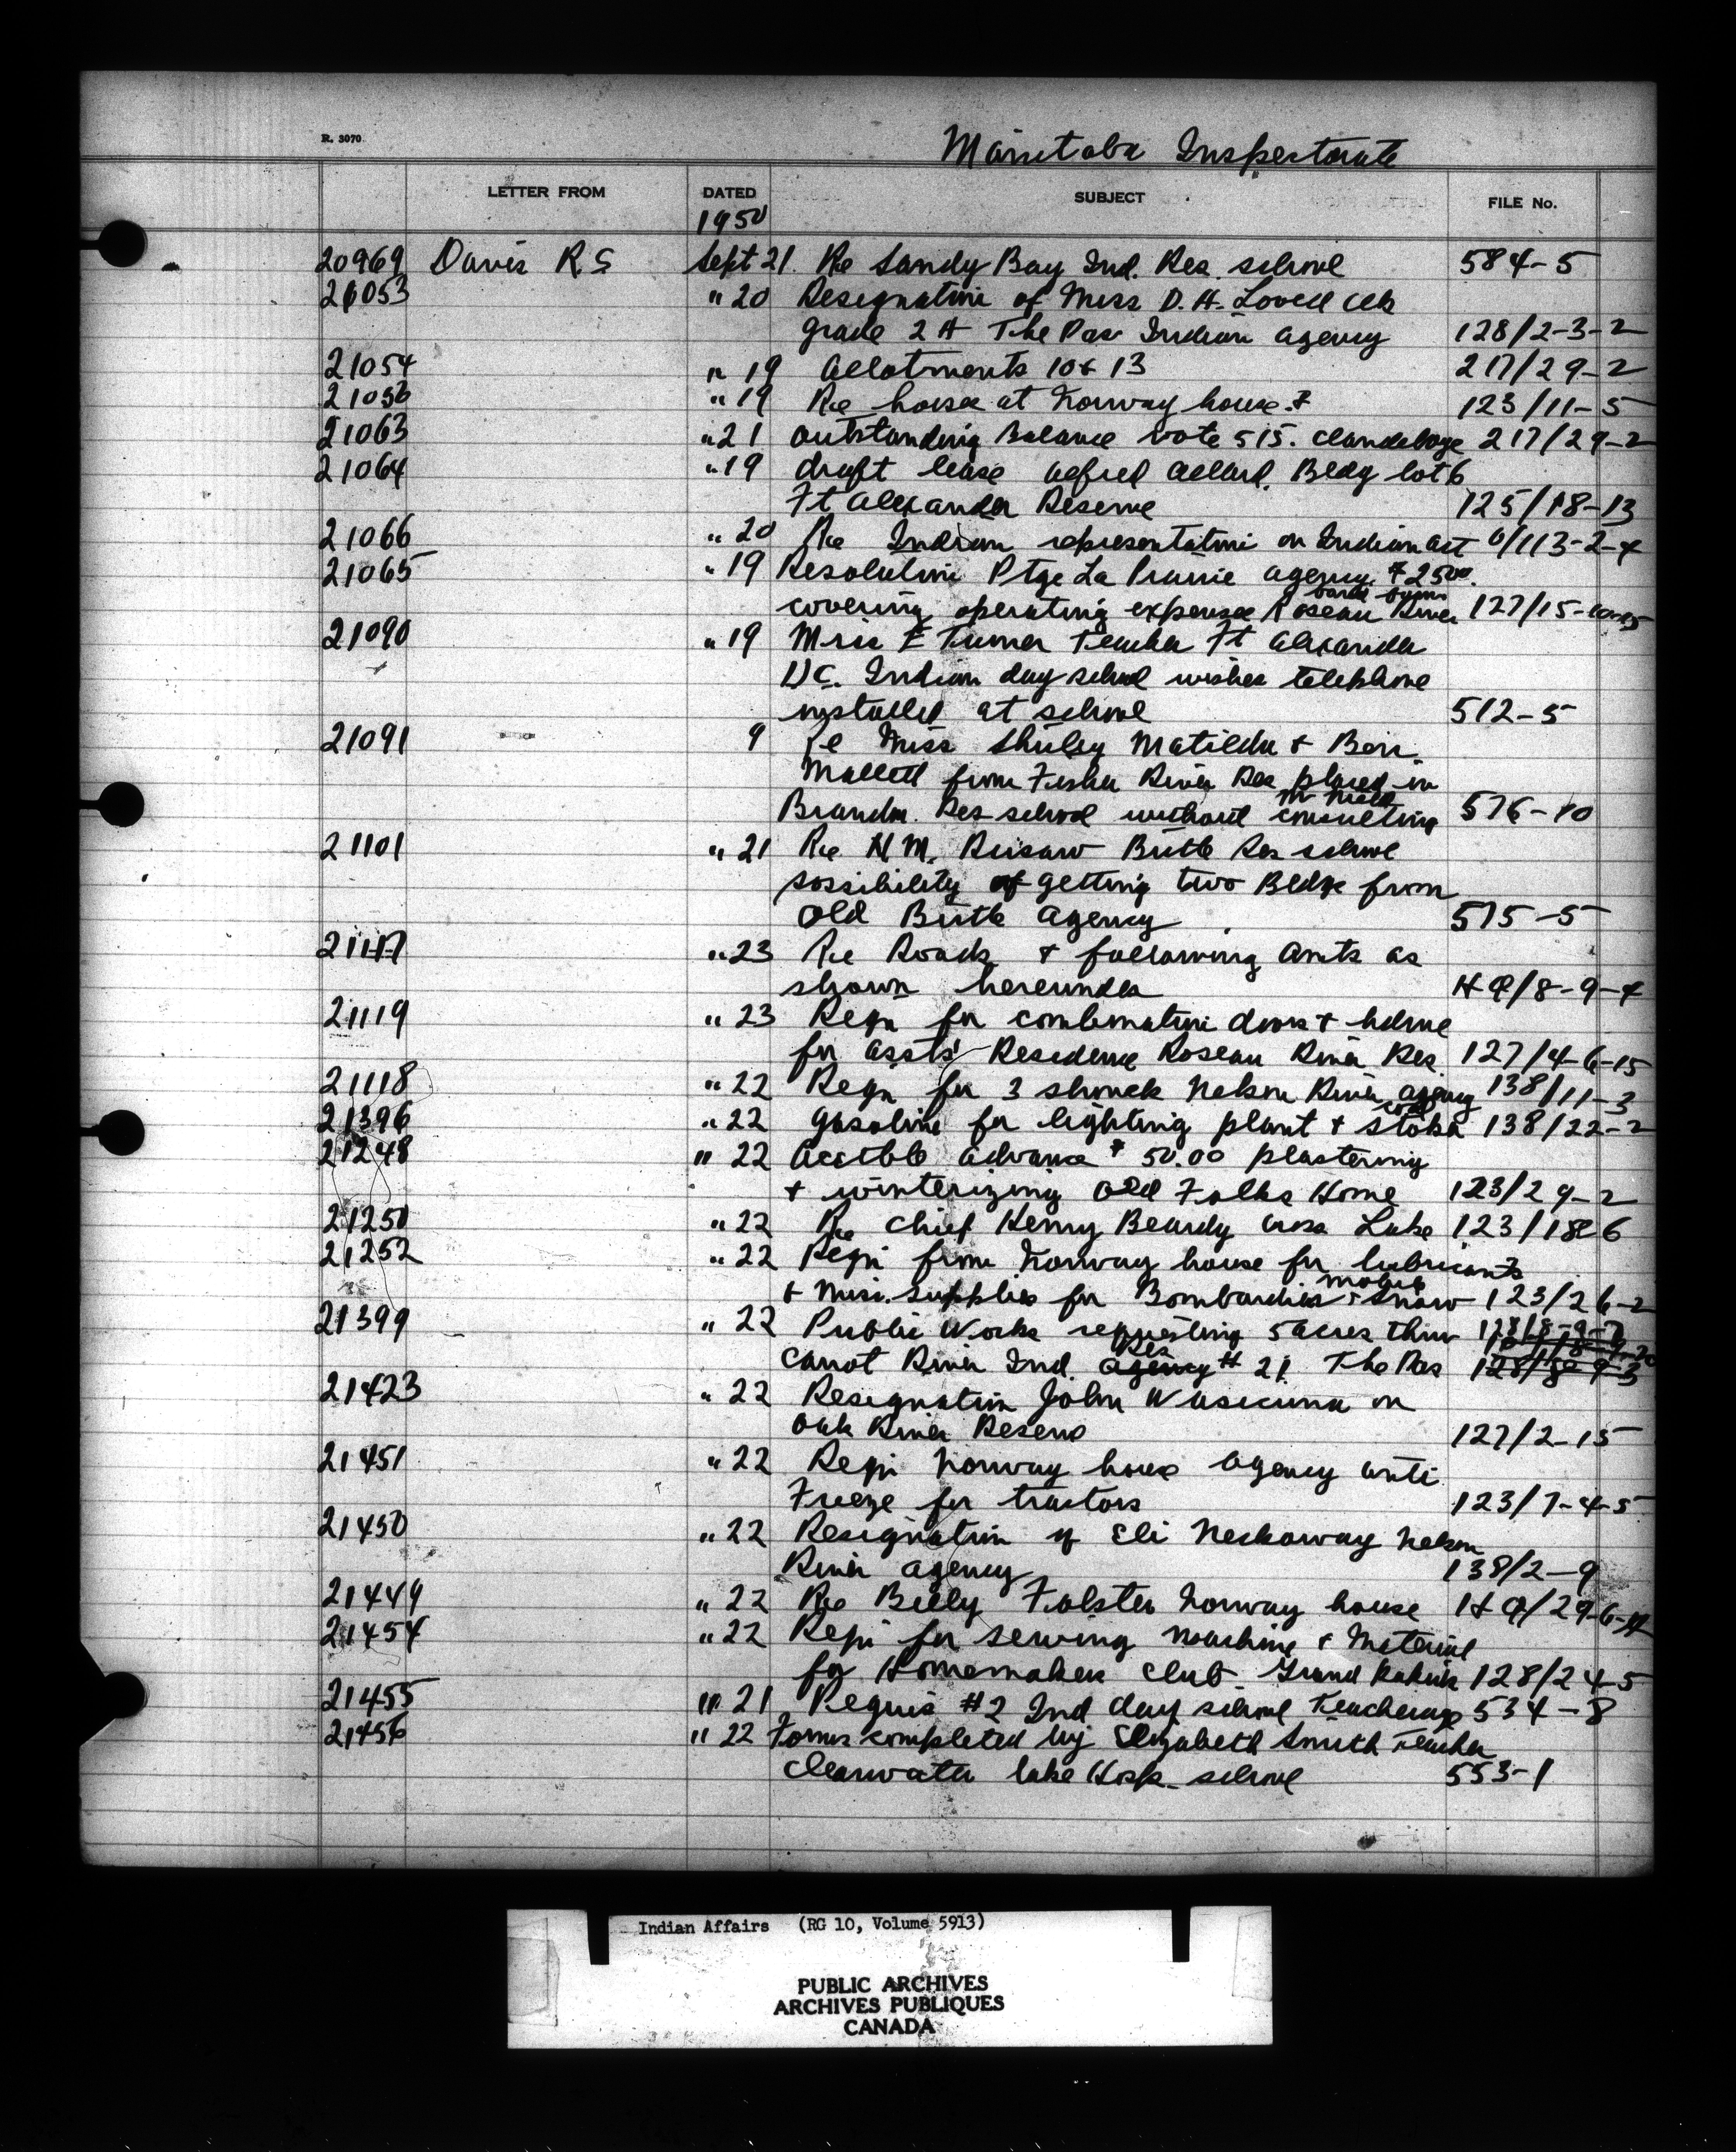 R. 3070
Manitoba Inspectorate
LETTER FROM DATED SUBJECT FILE No.
1950
20969 Davis R S Sept 21. Re Sandy Bay Ind. Res. school 584-5
21053 " 20 Resignation of Miss D. H. Lovell
grade 2 A The Pas Indian Agency 128/2-3-2
21054 " 19 Allotments 10 & 13 217/29-2
21056 " 19 Re horse at Norway house 123/11-5
21063 " 21 Outstanding Balance vote 515. Clandeboye 217/29-2
21064 " 19 draft lease Alfred Allard. Bldg lot 6
Ft Alexander Reserve 125/18-13
21066 " 20 Re Indian representation on Indian Act 6/113-2-4
21065 " 19 Resolution Ptge La Prairie agency $2500.
band farm
covering operating expenses Roseau River 127/15-10-15
21090 " 19 Miss E Turner Teacher Ft Alexander
Indian day school wishes telephone
installed at school 512-5
21091 9 Re Miss Shirley Matilda &
from Fisher River Res placed in
Brandon Res school without consulting 576-10
21101 " 21 Re H M. Birtle Res school
possibility of getting two Bldgs from
old Birtle Agency 575-5
21117 " 23 Re Roads & following amts as
shown hereunder HQ/8-9-4
21119 " 23 Reqn for combination doors &
for assts' Residence Roseau River Res. 127/4-6-15
21118 " 22 Reqn for 3 Nelson River agency 138/11-3
coal
21396 " 22 gasoline for lighting plant & stoker 138/22-2
21248 " 22 Acctble advance $50.00 plastering
& winterizing Old Folks Home 123/29-2
21250 " 22 Re Chief Henry Beardy Cross Lake 123/18-6
21252 " 22 Reqn from Norway house for lubricants
& Misc. supplies for Bombardier Snow 123/26-2
21399 " 22 Public Works requesting 5 acres thru 128/8-9-7
Res
Carrot River Ind. agency # 21 The Pas 128/8-9-3
21423 " 22 Resignation John Wasicuna on
Oak River Reserve 127/2-15
21451 " 22 Reqn Norway house agency anti
Freeze for tractors 123/7-4-5
21450 " 22 Resignation of Eli Neckoway Nelson
River agency 138/2-9
21449 " 22 Re Billy Folster Norway house HQ/29-6-
21454 " 22 Reqn for sewing machine & Material
for Homemakers club Grand Rapids 128/24-5
21455 " 21 Requis #2 Ind day school Teacherage 534-8
21456 " 22 Forms completed by Elizabeth Smith Teacher
Clearwater lake Hosp. school 553-1
Indian Affairs (RG 10, Volume 5913)
PUBLIC ARCHIVES
ARCHIVES PUBLIQUES
CANADA